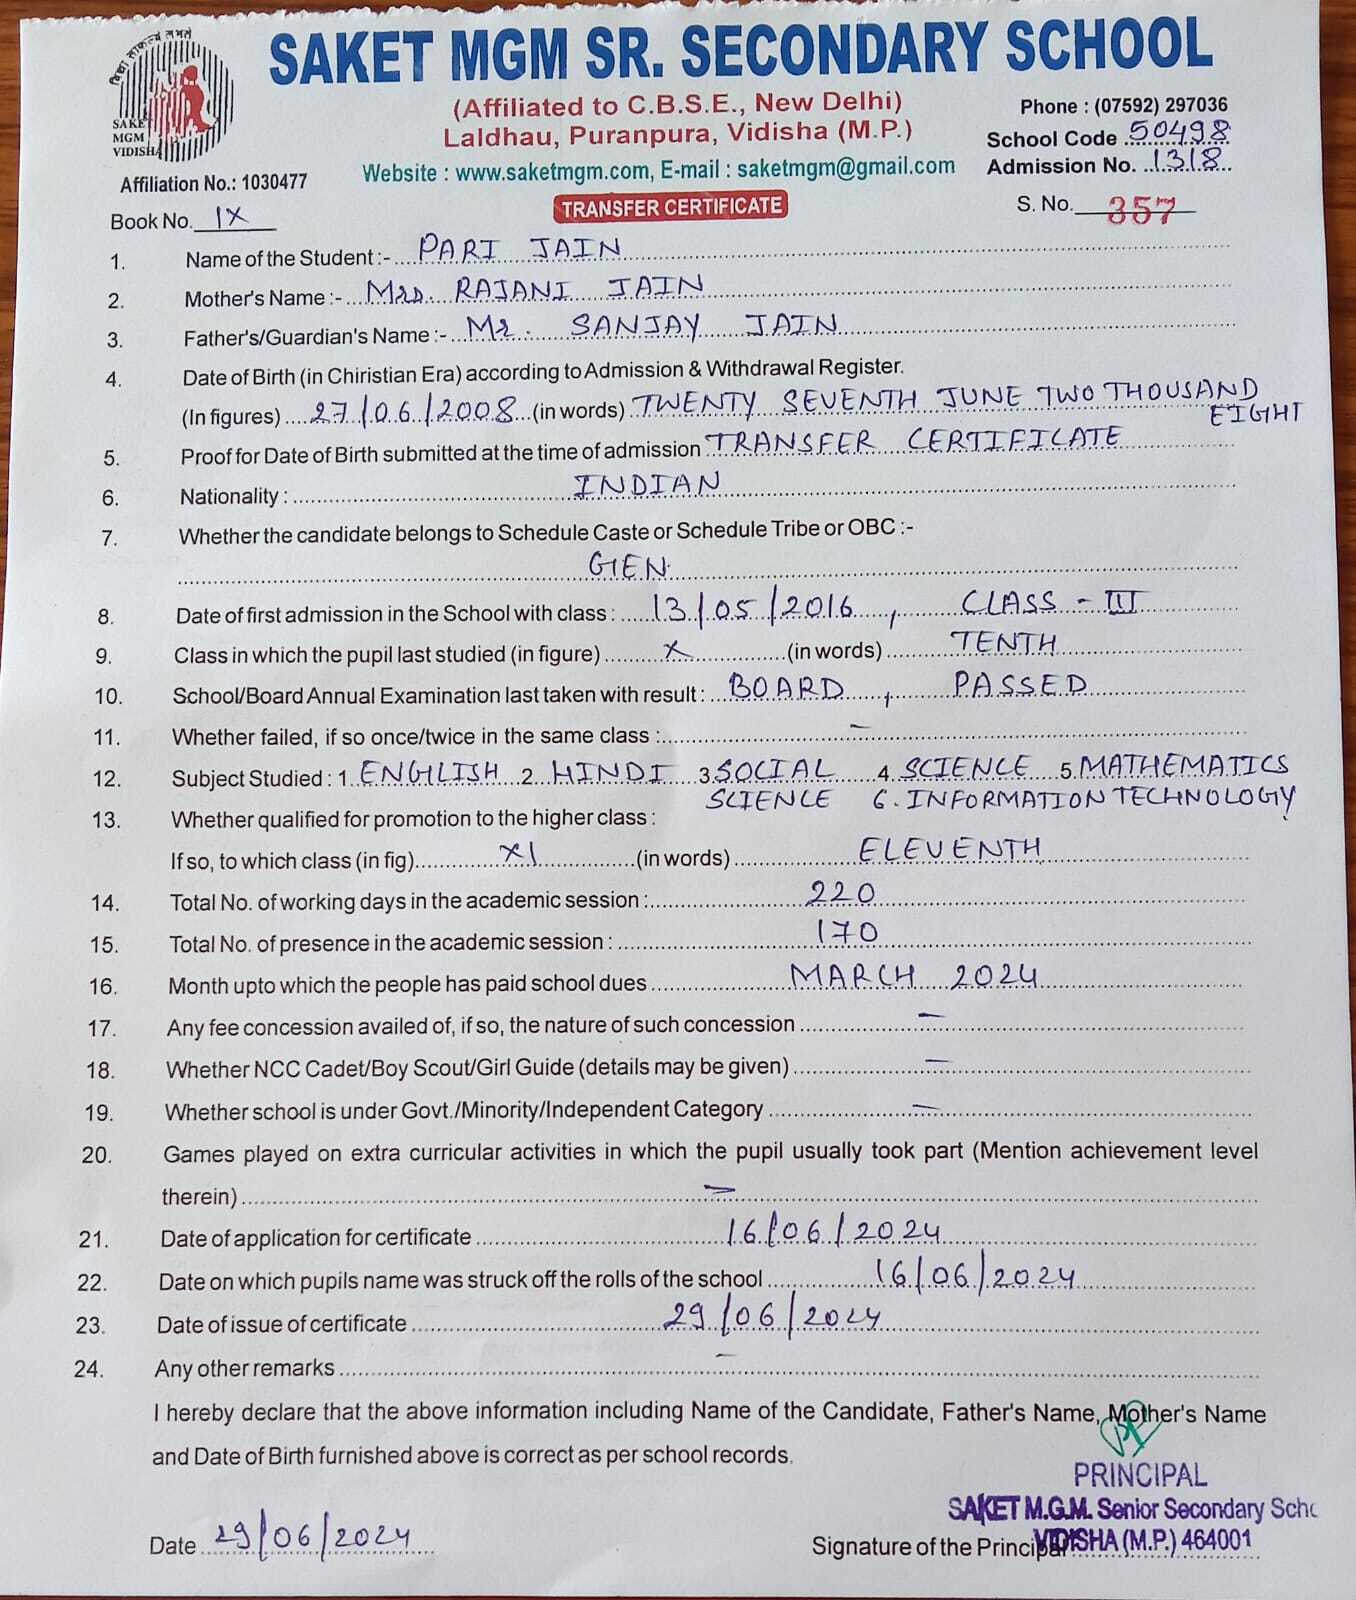 विद्या ताकत्यं लभते
SAKET
MGM
VIDISHA
SAKET MGM SR. SECONDARY SCHOOL
(Affiliated to C.B.S.E., New Delhi)
Laldhau, Puranpura, Vidisha (M.P.)
Website : www.saketmgm.com, E-mail : saketmgm@gmail.com
Phone : (07592) 297036
School Code 50498
Admission No. 1318
Affiliation No.: 1030477
Book No. IX
TRANSFER CERTIFICATE
S. No. 357
1. Name of the Student :- PARI JAIN
2. Mother's Name :- Mrs. RAJANI JAIN
3. Father's/Guardian's Name :- Mr. SANJAY JAIN
4. Date of Birth (in Chiristian Era) according to Admission & Withdrawal Register.
(In figures) 27/06/2008 (in words) TWENTY SEVENTH JUNE TWO THOUSAND
EIGHT
5. Proof for Date of Birth submitted at the time of admission TRANSFER CERTIFICATE
6. Nationality : INDIAN
7. Whether the candidate belongs to Schedule Caste or Schedule Tribe or OBC :-
GEN.
8. Date of first admission in the School with class : 13/05/2016, CLASS - III
9. Class in which the pupil last studied (in figure) X (in words) TENTH
10. School/Board Annual Examination last taken with result : BOARD, PASSED
11. Whether failed, if so once/twice in the same class : –
12. Subject Studied : 1. ENGLISH 2. HINDI 3. SOCIAL 4. SCIENCE 5. MATHEMATICS
SCIENCE 6. INFORMATION TECHNOLOGY
13. Whether qualified for promotion to the higher class :
If so, to which class (in fig) XI (in words) ELEVENTH
14. Total No. of working days in the academic session : 220
15. Total No. of presence in the academic session : 170
16. Month upto which the people has paid school dues MARCH 2024
17. Any fee concession availed of, if so, the nature of such concession –
18. Whether NCC Cadet/Boy Scout/Girl Guide (details may be given) –
19. Whether school is under Govt./Minority/Independent Category –
20. Games played on extra curricular activities in which the pupil usually took part (Mention achievement level
therein) –
21. Date of application for certificate 16/06/2024
22. Date on which pupils name was struck off the rolls of the school 16/06/2024
23. Date of issue of certificate 29/06/2024
24. Any other remarks –
I hereby declare that the above information including Name of the Candidate, Father's Name, Mother's Name
and Date of Birth furnished above is correct as per school records.
PRINCIPAL
SAKET M.G.M. Senior Secondary Scho
VIDISHA (M.P.) 464001
Date 29/06/2024
Signature of the Principal